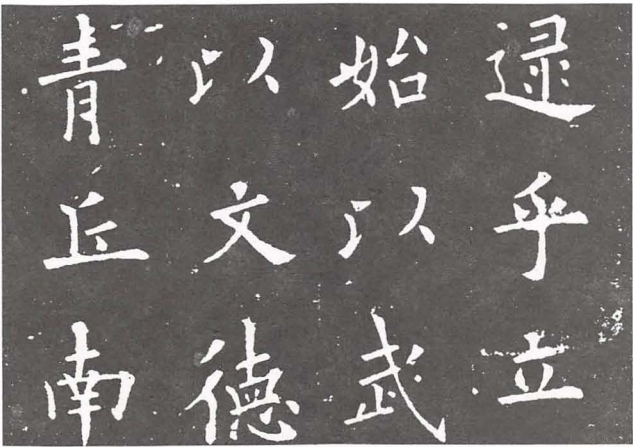 逯乎立
始以武
以文德
青丘南